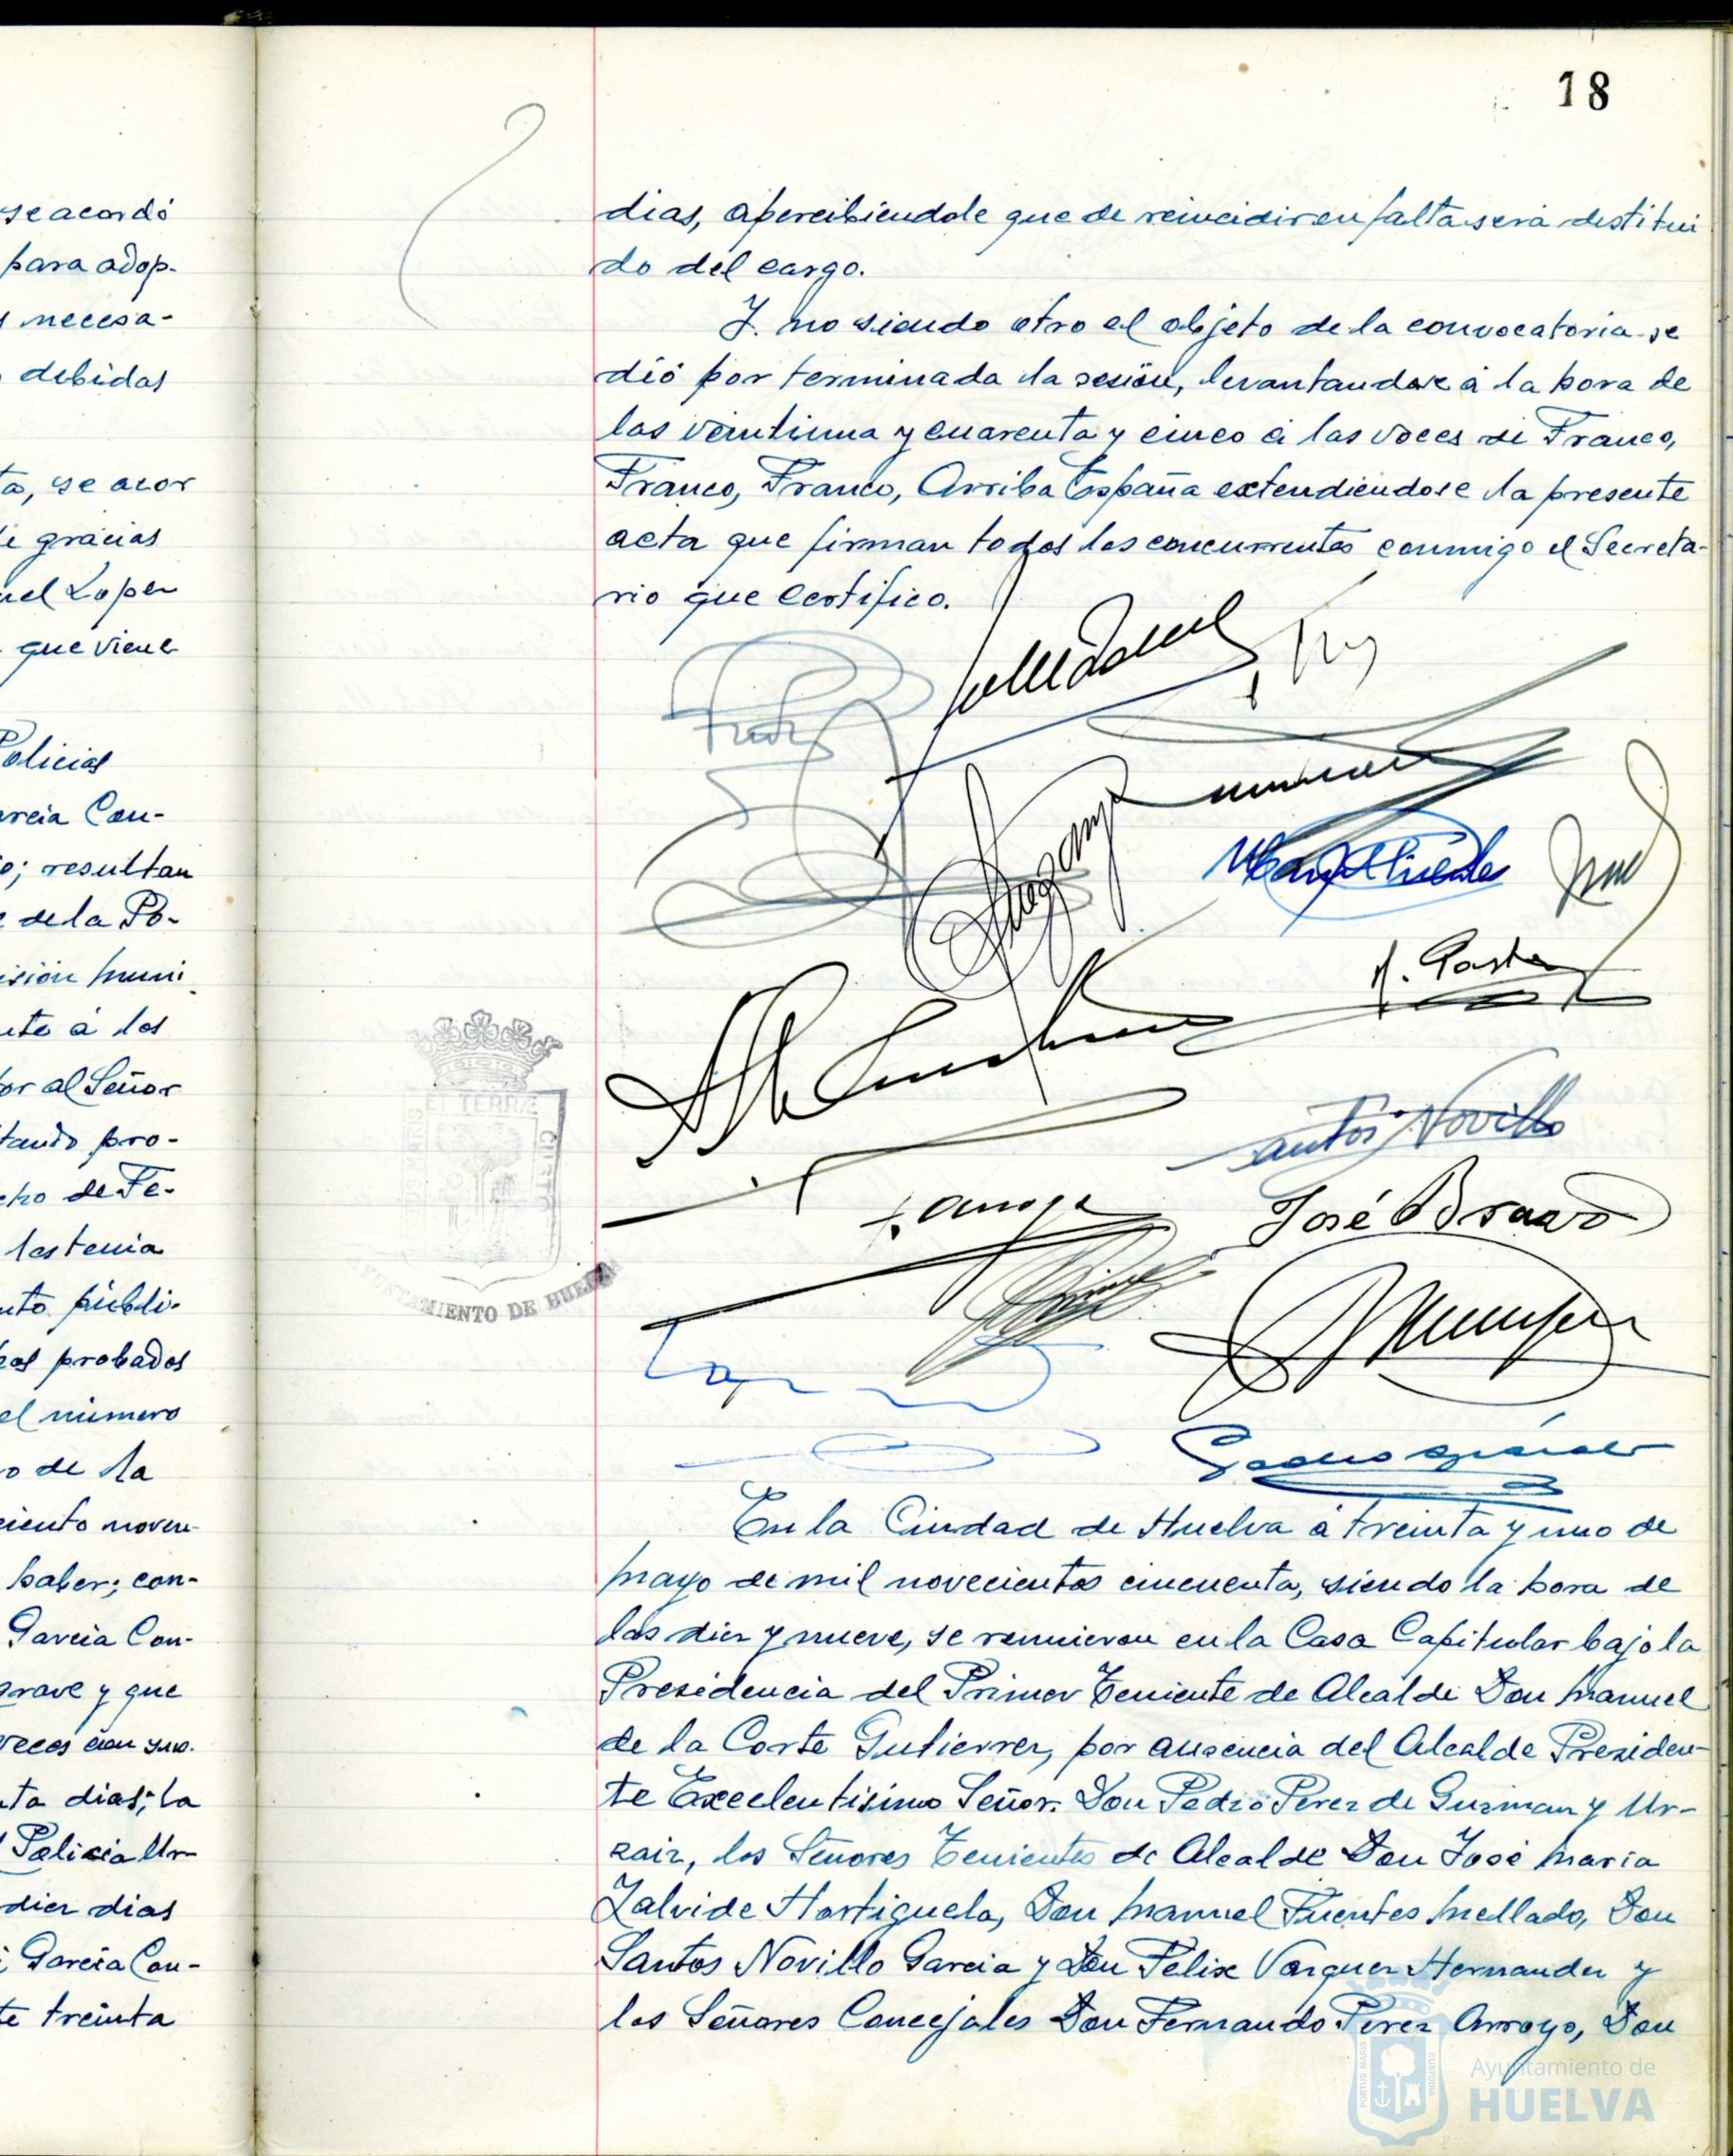 se acordó
para adop-
s necesa-
debidas
ta, se acor
de gracias
uel Lopez
que viene
Policias
arcia Con-
io; resultan
e de la Po-
isión muni
nte á los
tor al Señor
tando pro-
cho de Fe-
les tenia
nto públi-
hos probados
el número
o de la
ciento noven-
haber; con-
Garcia Con-
grave y que
veces con sus.
ta dias; la
Policia Ur-
diez dias
Garcia Con-
te treinta
18
dias, apercibiendole que de reincidir en falta será destitui
do del cargo.
Y. no siendo otro el objeto de la convocatoria se
dió por terminada la sesión, levantandose á la hora de
las veintiuna y cuarenta y cinco á las voces de Franco,
Franco, Franco, Arriba España extendiendose la presente
acta que firman todos los concurrentes conmigo el Secreta-
rio que certifico.
Santos Novillo
José Bravo
ET TERRÆ
CUSTO
AYUNTAMIENTO DE HUELVA
En la Ciudad de Huelva á treinta y uno de
mayo de mil novecientos cincuenta, siendo la hora de
las diez y nueve, se reunieron en la Casa Capitular bajo la
Presidencia del Primer Teniente de Alcalde Don Manuel
de la Corte Gutierrez, por ausencia del Alcalde Presiden-
te Excelentisimo Señor. Don Pedro Perez de Guzman y Ur-
zaiz, los Señores Tenientes de Alcalde Don José Maria
Zalvide Hortiguela, Don Manuel Fuentes Mellado, Don
Santos Novillo Garcia y Don Felix Vazquez Hernandez y
los Señores Concejales Don Fernando Perez Arroyo, Don
PORTUS MARIS
CUSTODIA
Ayuntamiento de
HUELVA